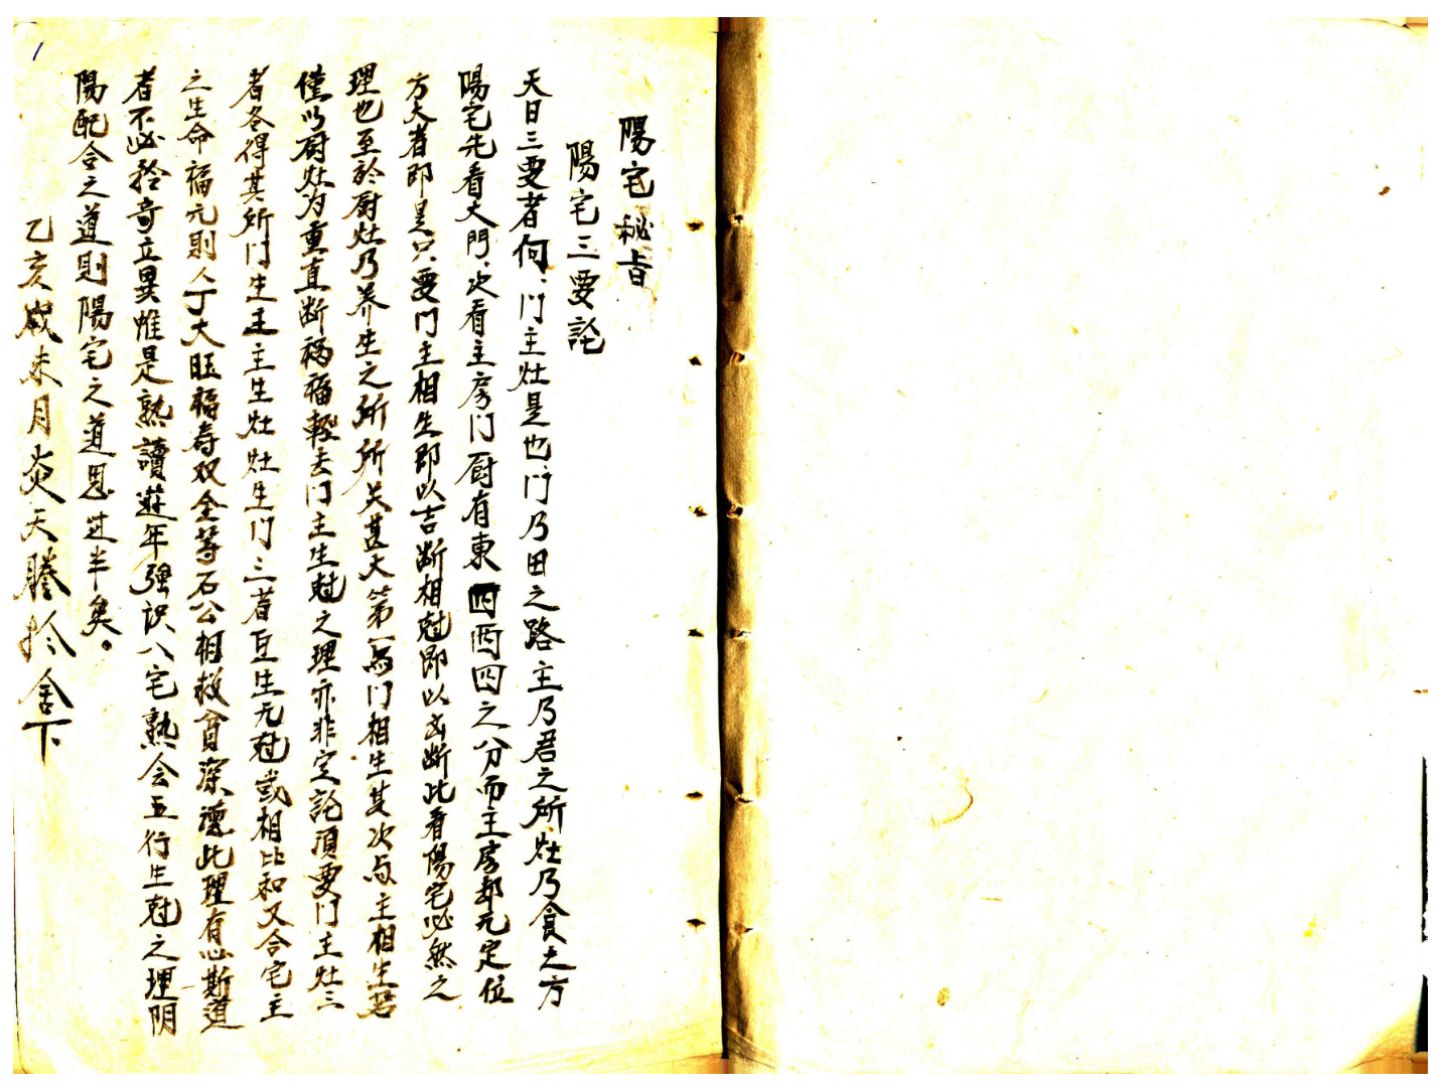 陽宅秘旨
陽宅三要訟
天日三要者何、门主灶是也门乃田之路主乃君之所灶乃食之方
陽宅先看大門、次看主房门厨有東四西四之分而主房却无定位
方大者即是只要门主相生即以吉断相尅即以凶断此看陽宅必然之
理也至於厨灶乃养生之所所关甚大第一与门相生其次与主相生若
僅以厨灶为重直断祸福輕去门主生尅之理亦非定訟須要门主灶三
者各得其所门生主主生灶灶生门三者互生无尅或相比和又合宅主
之生命福元則人丁大旺福寿双全等石公相救貧深褸此理有心斯道
者不必矜奇立異惟是熟讀遊年强识八宅熟会五行生尅之理阴
陽配合之道則陽宅之道思过半矣。
乙亥歲未月炎天謄於舍下
1